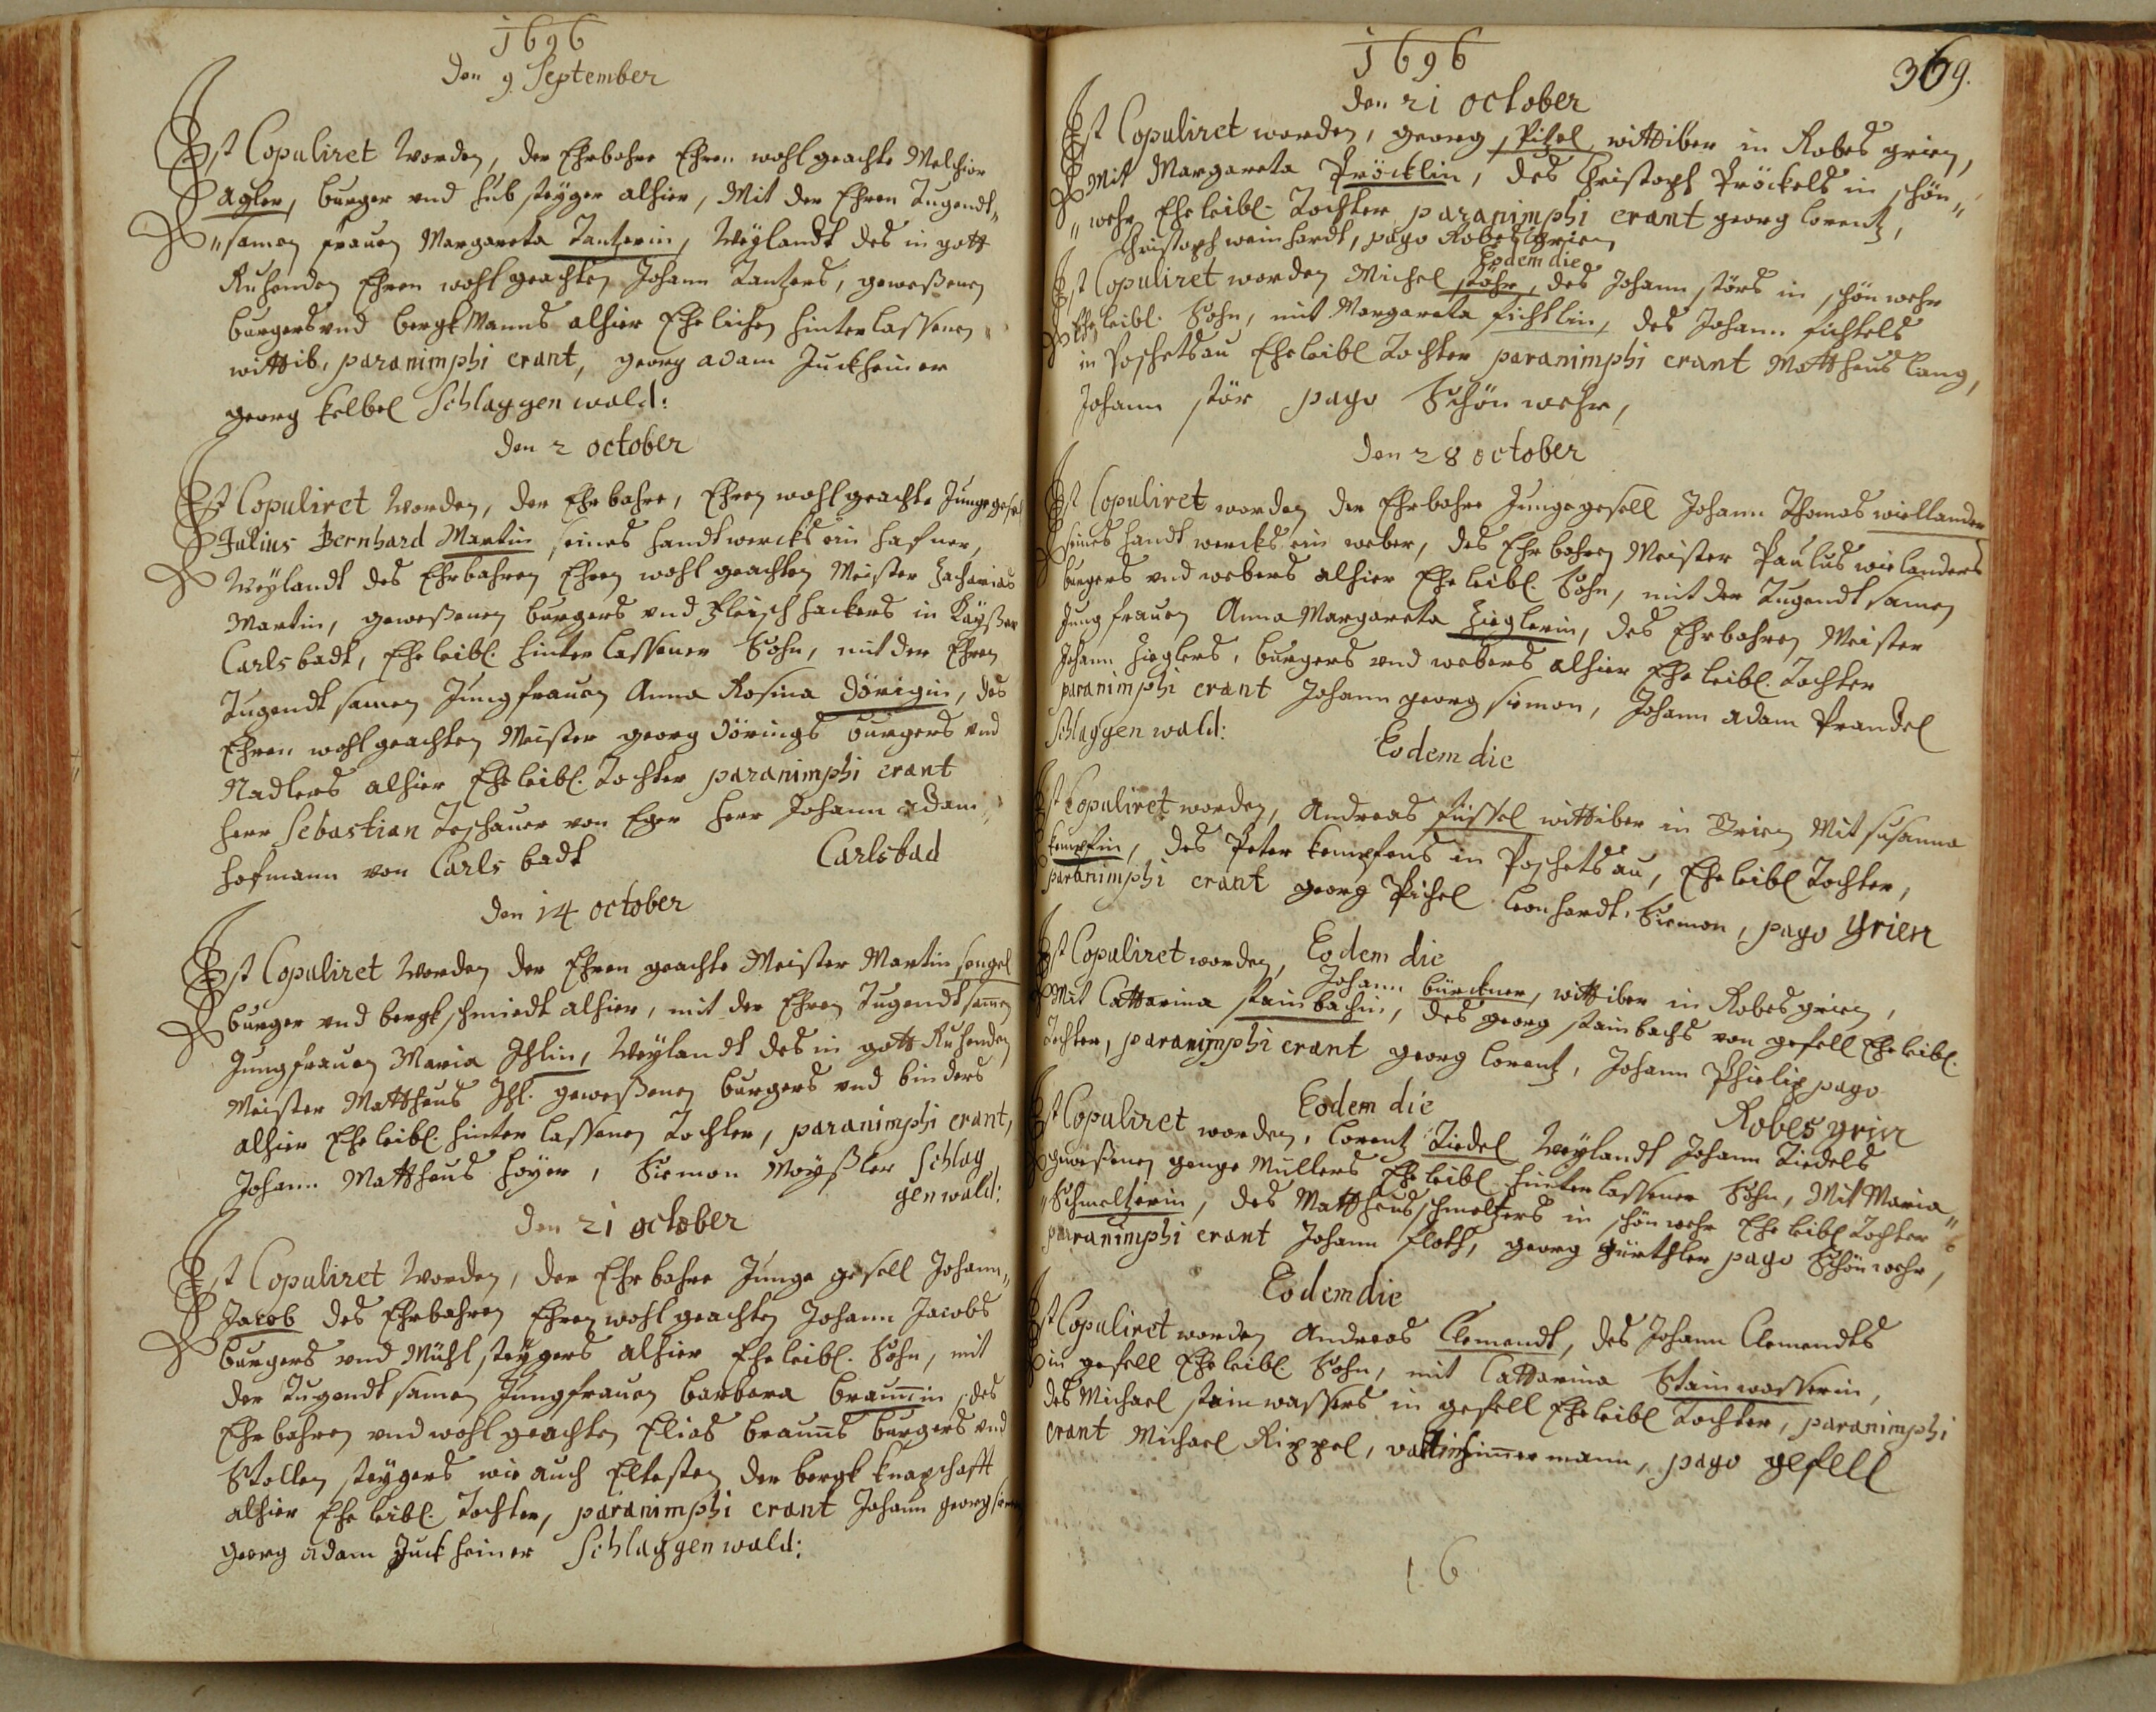 1696
den 9. September
Ist Copuliret worden, der Ehrbahre Ehren wohl geachte Melchior
Agler, burger vnd hub steyger alhier, Mit der Ehren Tugendt„
„samen frauen Margareta Tantzerin, Weylandt des in gott
Ruhenden Ehren wohl geachten Johann Tantzers, geweßenen
burgers vnd bergkManns alhier Ehelichen hinterlassenen
wittib, paranimphi erant, georg adam Juckheiner
georg kelbel Schlaggen wald:
den 2 october
Ist Copuliret worden, der Ehrbahre, Ehren wohl geachte Junge gesel
Julius Bernhard Martin seines handtwercks ein hafner,
Weylandt des Ehrbahren Ehren wohl geachten Meister Zacharias
Martin, geweßenen burgers vnd Fleischhackers in Kayßer
Carls badt, Eheleibl. hinter lassener Sohn, mit der Ehren
Tugendt samen Jungfrauen Anna Rosina Dörigin, des
Ehren wohl geachten Meister georg Dörings burgers vnd
Nadlers alhier Eheleibl. Tochter paranimphi erant
herr Sebastian Toschauer von Eger herr Johann adam„
hofmann von Carls badt Carlsbad
den 14 october
Ist Copuliret worden der Ehren geachte Meister Martin sengel
burger vnd bergk schmiedt alhier, mit der Ehren Tugendt samen
Jungfrauen Maria Ihlin, Weylandt des in gott Ruhenden
Meister Mattheus Ihl. geweßenen burgers vnd binders
alhier Eheleibl. hinter lassenen Tochter, paranimphi erant,
Johann Mattheus hoyer, Siemon Moyßler Schlag
gen wald:
den 21 october
Ist Copuliret worden, der Ehrbahre Junge gesell Johann„
Jacob des Ehrbahren Ehren wohl geachten Johann Jacobs
burgers vnd Mühl steygers alhier Eheleibl. Sohn, mit
der Tugendt samen Jungfrauen barbara braunin, des
Ehrbahren vnd wohl geachten Elias brauns burgers vnd
Stollen steygers wie auch Eltesten der bergk knapschafft
alhier Eheleibl. Tochter, paranimphi erant Johann georg
georg adam Juckheiner Schlaggenwald:
1696
369.
den 21 october
Ist Copuliret worden, georg Pitzel, wittiber in Robes grien,
Mit Margareta Pröcklin, des Christoph Pröckels in schön„
„wehr Eheleibl. Tochter paranimphi erant georg lorentz,
Christoph weinhardt, pago Robes grien
Eodem die
Ist Copuliret worden Michel Stöhr, des Johann störs in schönwehr
Eheleibl. Sohn, mit Margareta fichtlin, des Johann fichtels
in Poschetsau Eheleibl Tochter paranimphi erant Mattheus lang,
Johann stör pago Schönwehr,
den 28 october
Ist Copuliret worden der Ehrbahre Junge gesell Johann Thomas wiellander
seines handt wercks ein weber, des Ehrbahren Meister Paulus wielanders
burgers vnd webers alhier Eheleibl. Sohn, mit der Tugendt samen
Jungfrauen Anna Margareta Zieglerin, des Ehrbahren Meister
Johann Zieglers, burgers vnd webers alhier Eheleibl. Tochter
paranimphi erant Johann georg siemon, Johann adam Prandel
Schlaggen wald:
Eodem die
Ist Copuliret worden, Andreas füssel wittiber in Grien Mit susanna
kempfin, des Peter kempfens in Poschetsau, Eheleibl Tochter,
paranimphi erant georg Pichel leonhardt, Siemon, pago grien
Eodem die
Ist Copuliret worden, Johann bürckner, wittiber in Robesgrien,
Mit Cattarina Stainbachin, des georg stainbachs von gesell Eheleibl.
Tochter, paranimphi erant georg lorentz, Johann Phielip pago
Robesgrin
Eodem die
Ist Copuliret worden, lorentz Tiedel Weylandt Johann Tiedels
geweßenen Müllers Eheleibl hinterlassener Sohn, Mit Maria„
„Schmeltzerin, des Mattheus schmeltzers in schönwehr Eheleibl Tochter
paranimphi erant Johann floth, georg gürthler pago Schönwehr,
Eodem die
Ist Copuliret worden Andreas Clemendt, des Johann Clemendts
in gesell Eheleibl. Sohn, mit Cattarina Stainwasserin,
des Michael stainwassers in gesell Eheleibl Tochter, paranimphi
erant Michael Rippel, zimermann, pago gesell